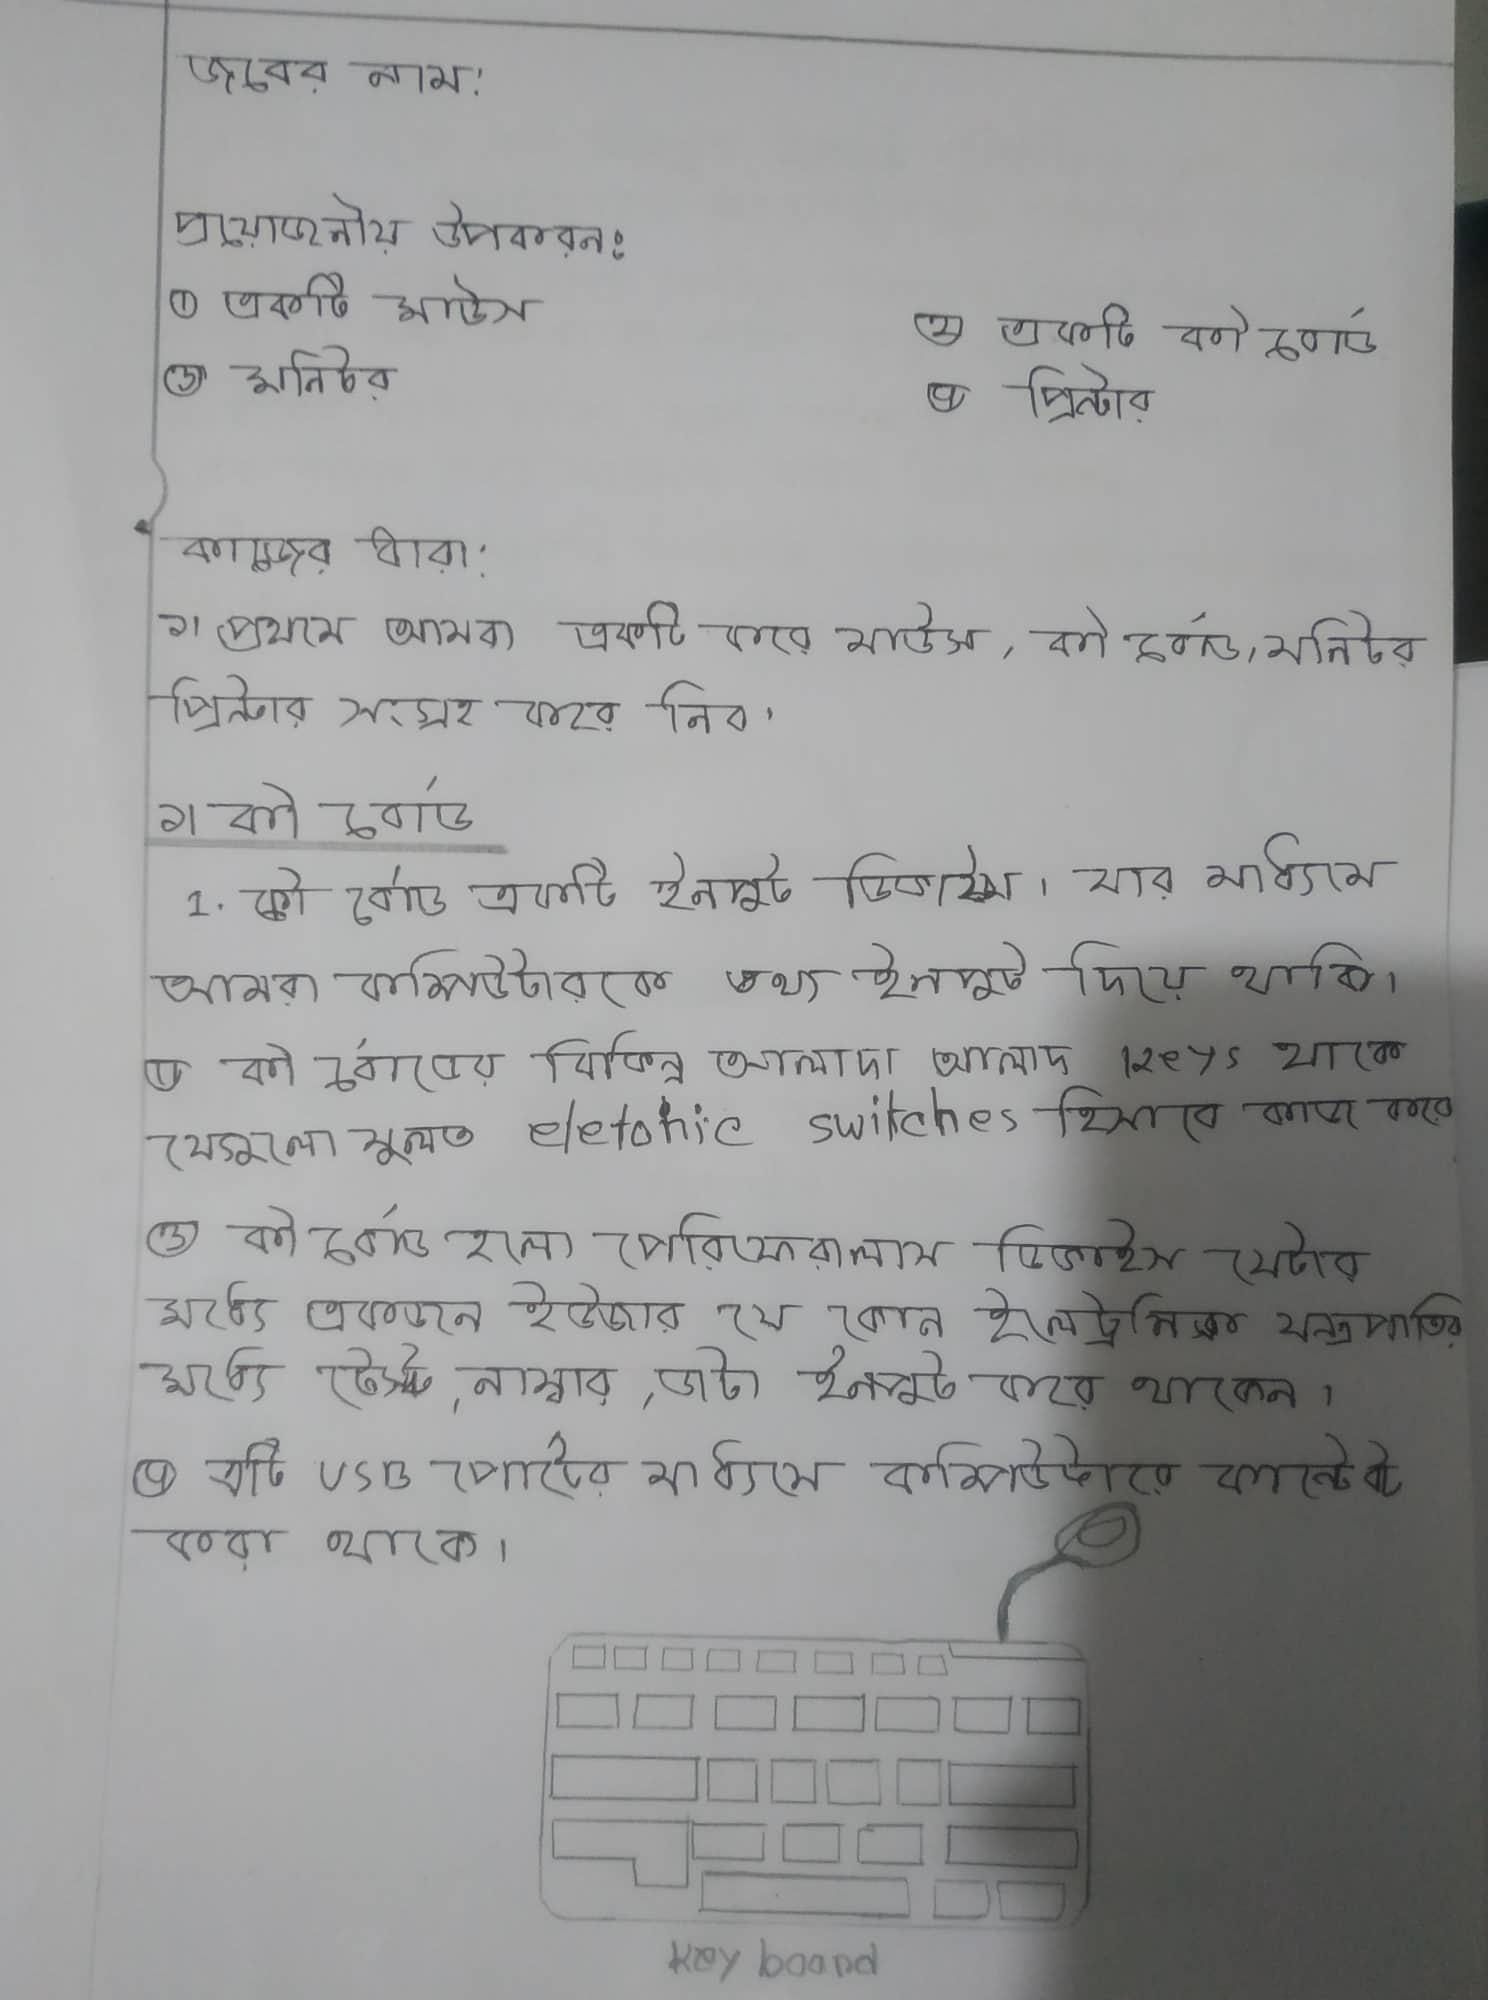 জবের নাম:
প্রয়োজনীয় উপকরন:
① একটি মাউস
② একটি কী বোর্ড
③ মনিটর
④ প্রিন্টার
কাজের ধারা:
১। প্রথমে আমরা একটি করে মাউস, কী বোর্ড, মনিটর
প্রিন্টার সংগ্রহ করে নিব।
১। কী বোর্ড
1. কী বোর্ড একটি ইনপুট ডিভাইস। যার মাধ্যমে
আমরা কম্পিউটারকে তথ্য ইনপুট দিয়ে থাকি।
কী বোর্ডের বিভিন্ন আলাদা আলাদ keys থাকে
যেগুলো মুলত eletohic switches হিসাবে কাজ করে
③ কী বোর্ড হলো পেরিফেরালাস ডিভাইস যেটার
মধ্যে একজন ইউজার যে কোন ইলেট্রনিক্স যন্ত্রপাতির
মধ্যে টেক্সট, নাম্বার, ডাটা ইনপুট করে থাকেন।
④ এটি USB পোর্টের মাধ্যমে কম্পিউটারে কান্টেক্ট
করা থাকে।
Key boand